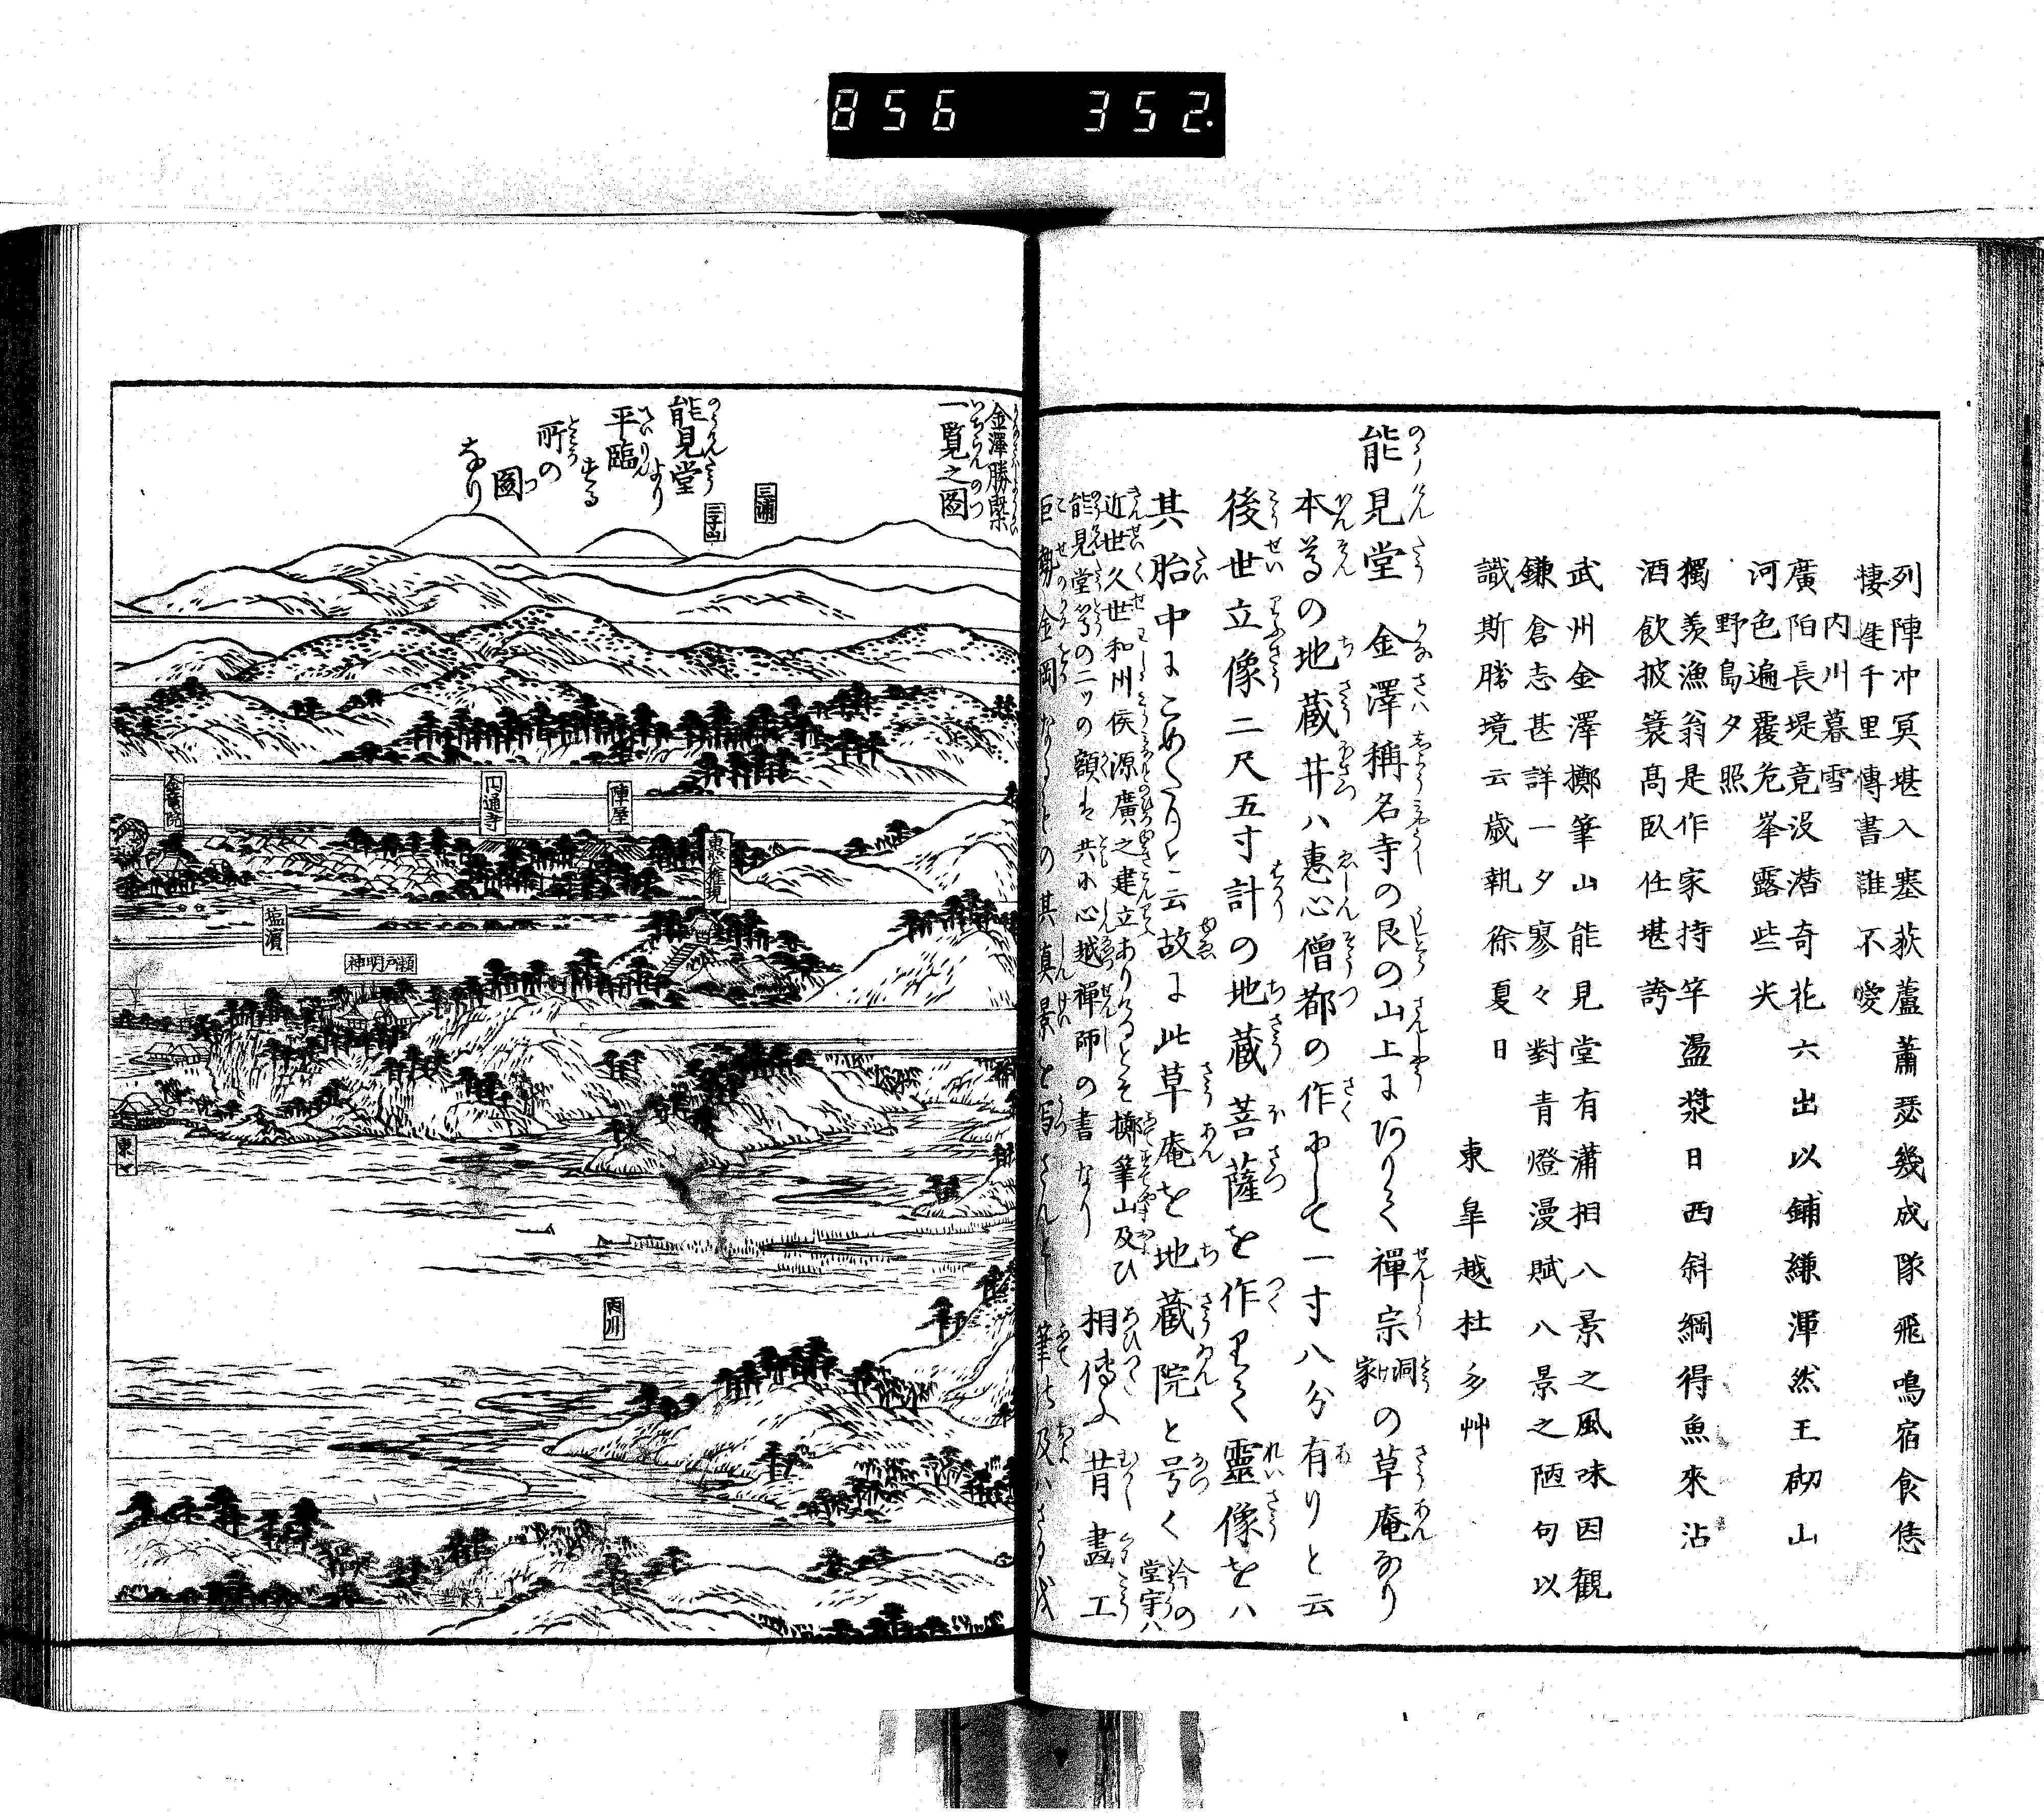 856 352.
列陣冲冥堪入塞荻蘆蕭瑟幾成隊飛鳴宿食恁
棲遲千里傳書誰不愛
内川暮雪
廣陌長堤竟沒潜奇花六出以鋪縑渾然王砌山
河色遍覆危峯露些尖
野島夕照
獨羨漁翁是作家持竿盪槳日西斜網得魚來沽
酒飲披簑高臥任堪誇
武州金澤擲筆山能見堂有瀟相八景之風味因観
鎌倉志甚詳一夕寥々對青燈漫賦八景之陋句以
識斯勝境云歳執徐夏日
東皐越杜多艸
能見堂 金澤稱名寺の艮の山上にありて禪宗洞家の草庵なり
本尊の地蔵井ハ惠心僧都の作にして一寸八分有りと云
後世立像二尺五寸計の地蔵菩薩を作りて靈像をハ
其胎中にこめたりと云故に此草庵を地蔵院と号く今の堂宇ハ
近世久世和州侯源廣之建立ありけるとそ擲筆山及ひ
能見堂等の二ッの額は共に心越禅師の書なり
相傳ふ昔畫工
巨勢金岡なるもの其真景を写さんとし筆の及ハさるを
金澤勝槩
一覧之圖
能見堂
より
平臨
する
所の
圖
なり
三浦
三子山
金龍院
円通寺
陣屋
熊野權現
塩濱
瀬戸明神
東や
内川